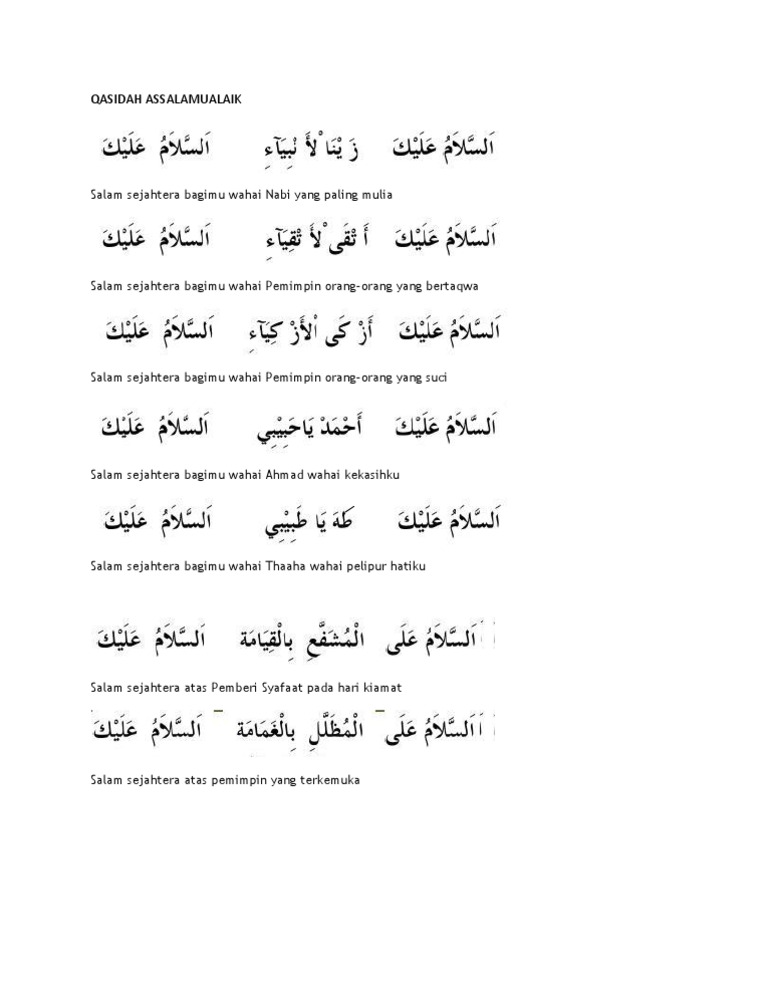 QASIDAH ASSALAMUALAIK
اَلسَّلاَمُ عَلَيْكَ زَ يْنَا ْلأَ نْبِيَآءِ اَلسَّلاَمُ عَلَيْكَ
Salam sejahtera bagimu wahai Nabi yang paling mulia
اَلسَّلاَمُ عَلَيْكَ أَ تْقَى ْلأَ تْقِيَآءِ اَلسَّلاَمُ عَلَيْكَ
Salam sejahtera bagimu wahai Pemimpin orang-orang yang bertaqwa
اَلسَّلاَمُ عَلَيْكَ أَزْ كَى اْلأَزْ كِيَآءِ اَلسَّلاَمُ عَلَيْكَ
Salam sejahtera bagimu wahai Pemimpin orang-orang yang suci
اَلسَّلاَمُ عَلَيْكَ أَحْمَدْ يَاحَبِيْبِي اَلسَّلاَمُ عَلَيْكَ
Salam sejahtera bagimu wahai Ahmad wahai kekasihku
اَلسَّلاَمُ عَلَيْكَ طَهَ يَا طَبِيْبِي اَلسَّلاَمُ عَلَيْكَ
Salam sejahtera bagimu wahai Thaaha wahai pelipur hatiku
اَلسَّلاَمُ عَلَى الْمُشَفَّعِ بِالْقِيَامَة اَلسَّلاَمُ عَلَيْكَ
Salam sejahtera atas Pemberi Syafaat pada hari kiamat
اَلسَّلاَمُ عَلَى الْمُظَلَّلِ بِالْغَمَامَة اَلسَّلاَمُ عَلَيْكَ
Salam sejahtera atas pemimpin yang terkemuka